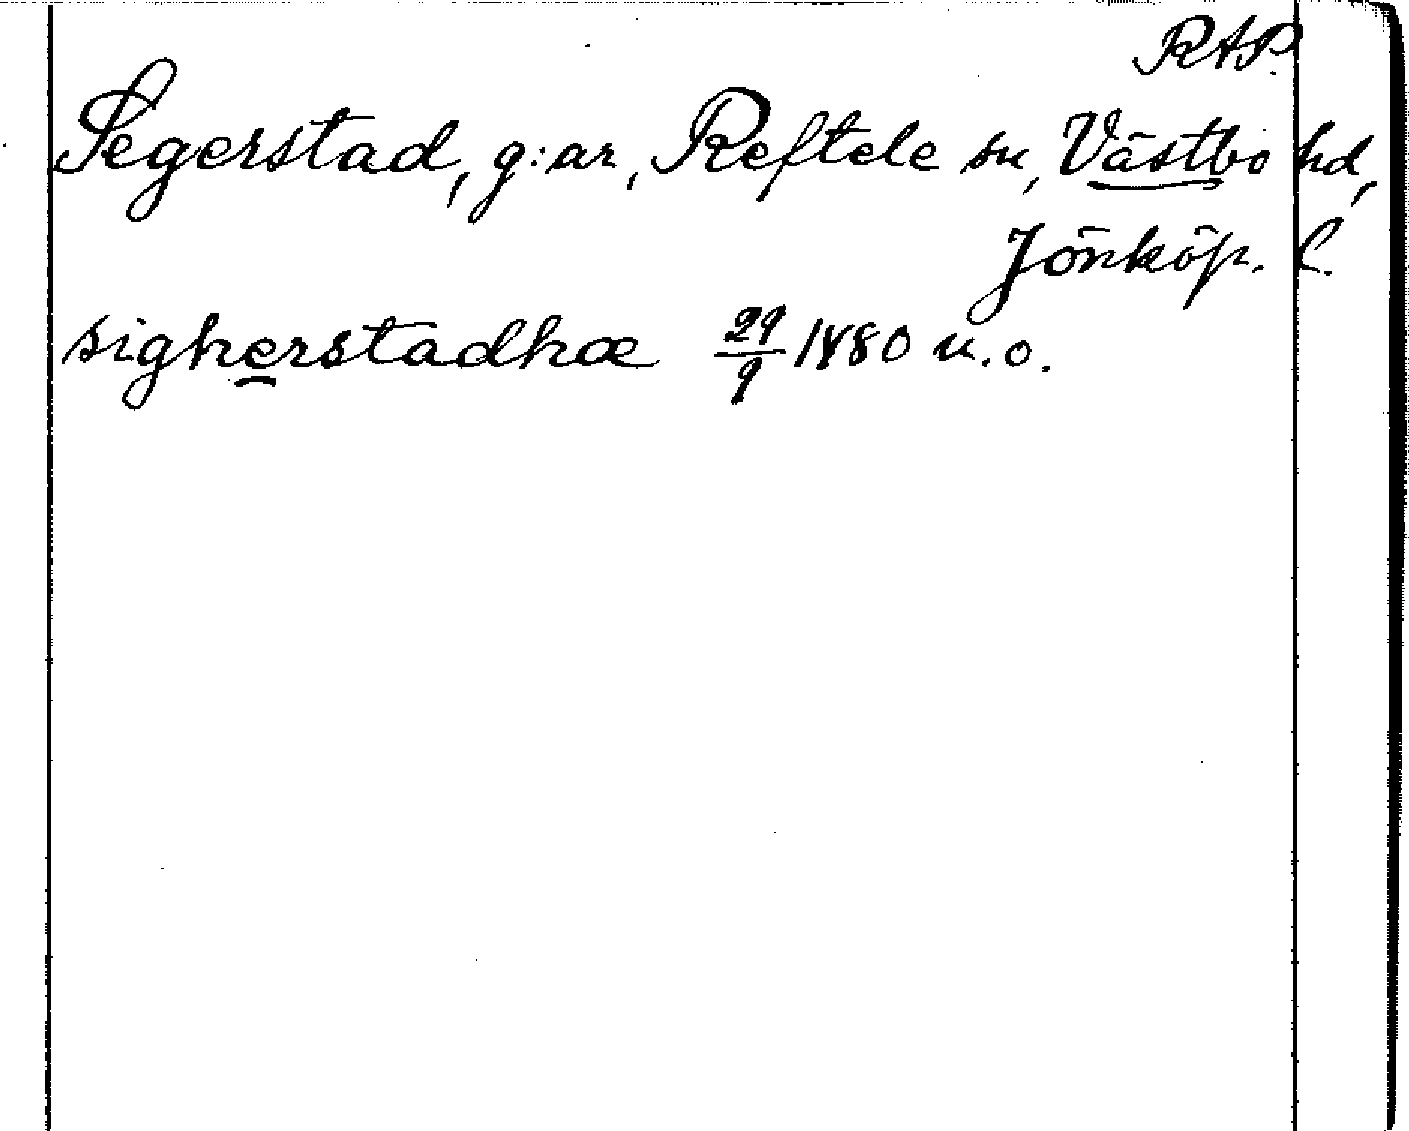 RAP.
Segerstad, g:ar, Reftele sn, Västbo hd,
Jönköp. l.
sigherstadhæ 29/9 1480 u.o.